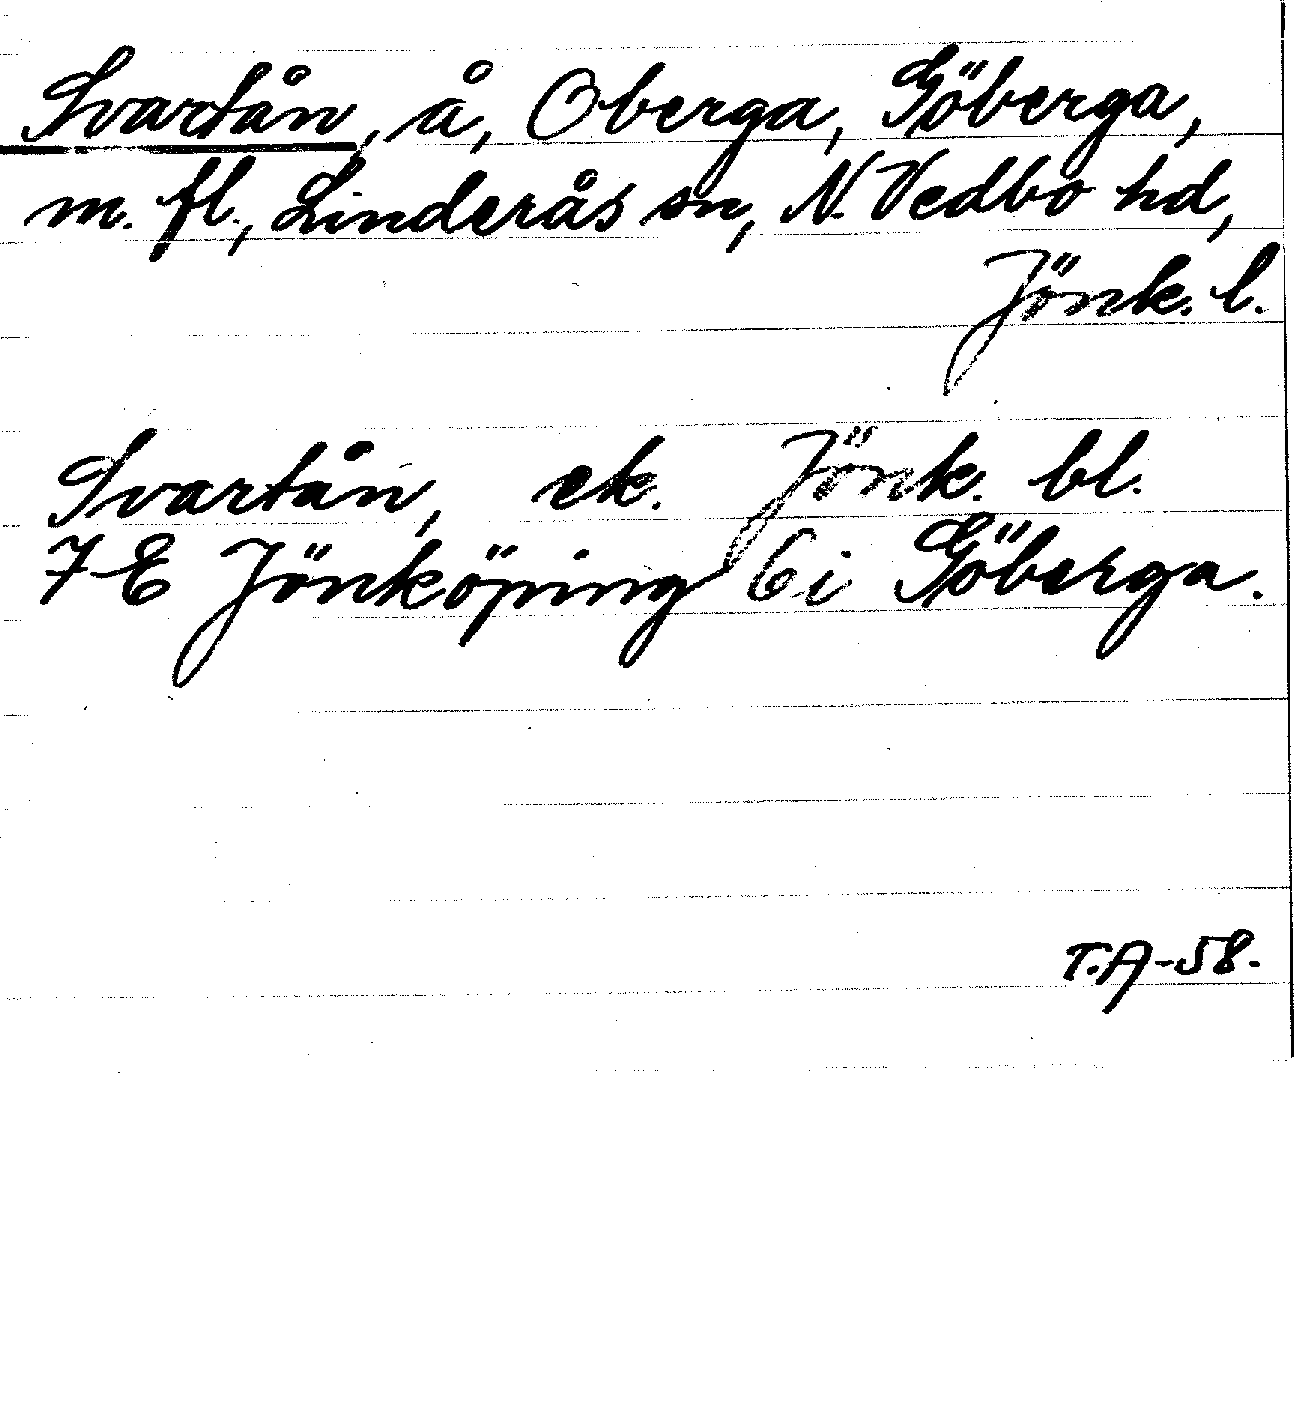 Svartån, å, Oberga, Göberga,
m. fl., Linderås sn, N. Vedbo hd,
Jönk. l.
Svartån, ek. Jönk. bl.
7E Jönköping 6i Göberga.
T.A-58.